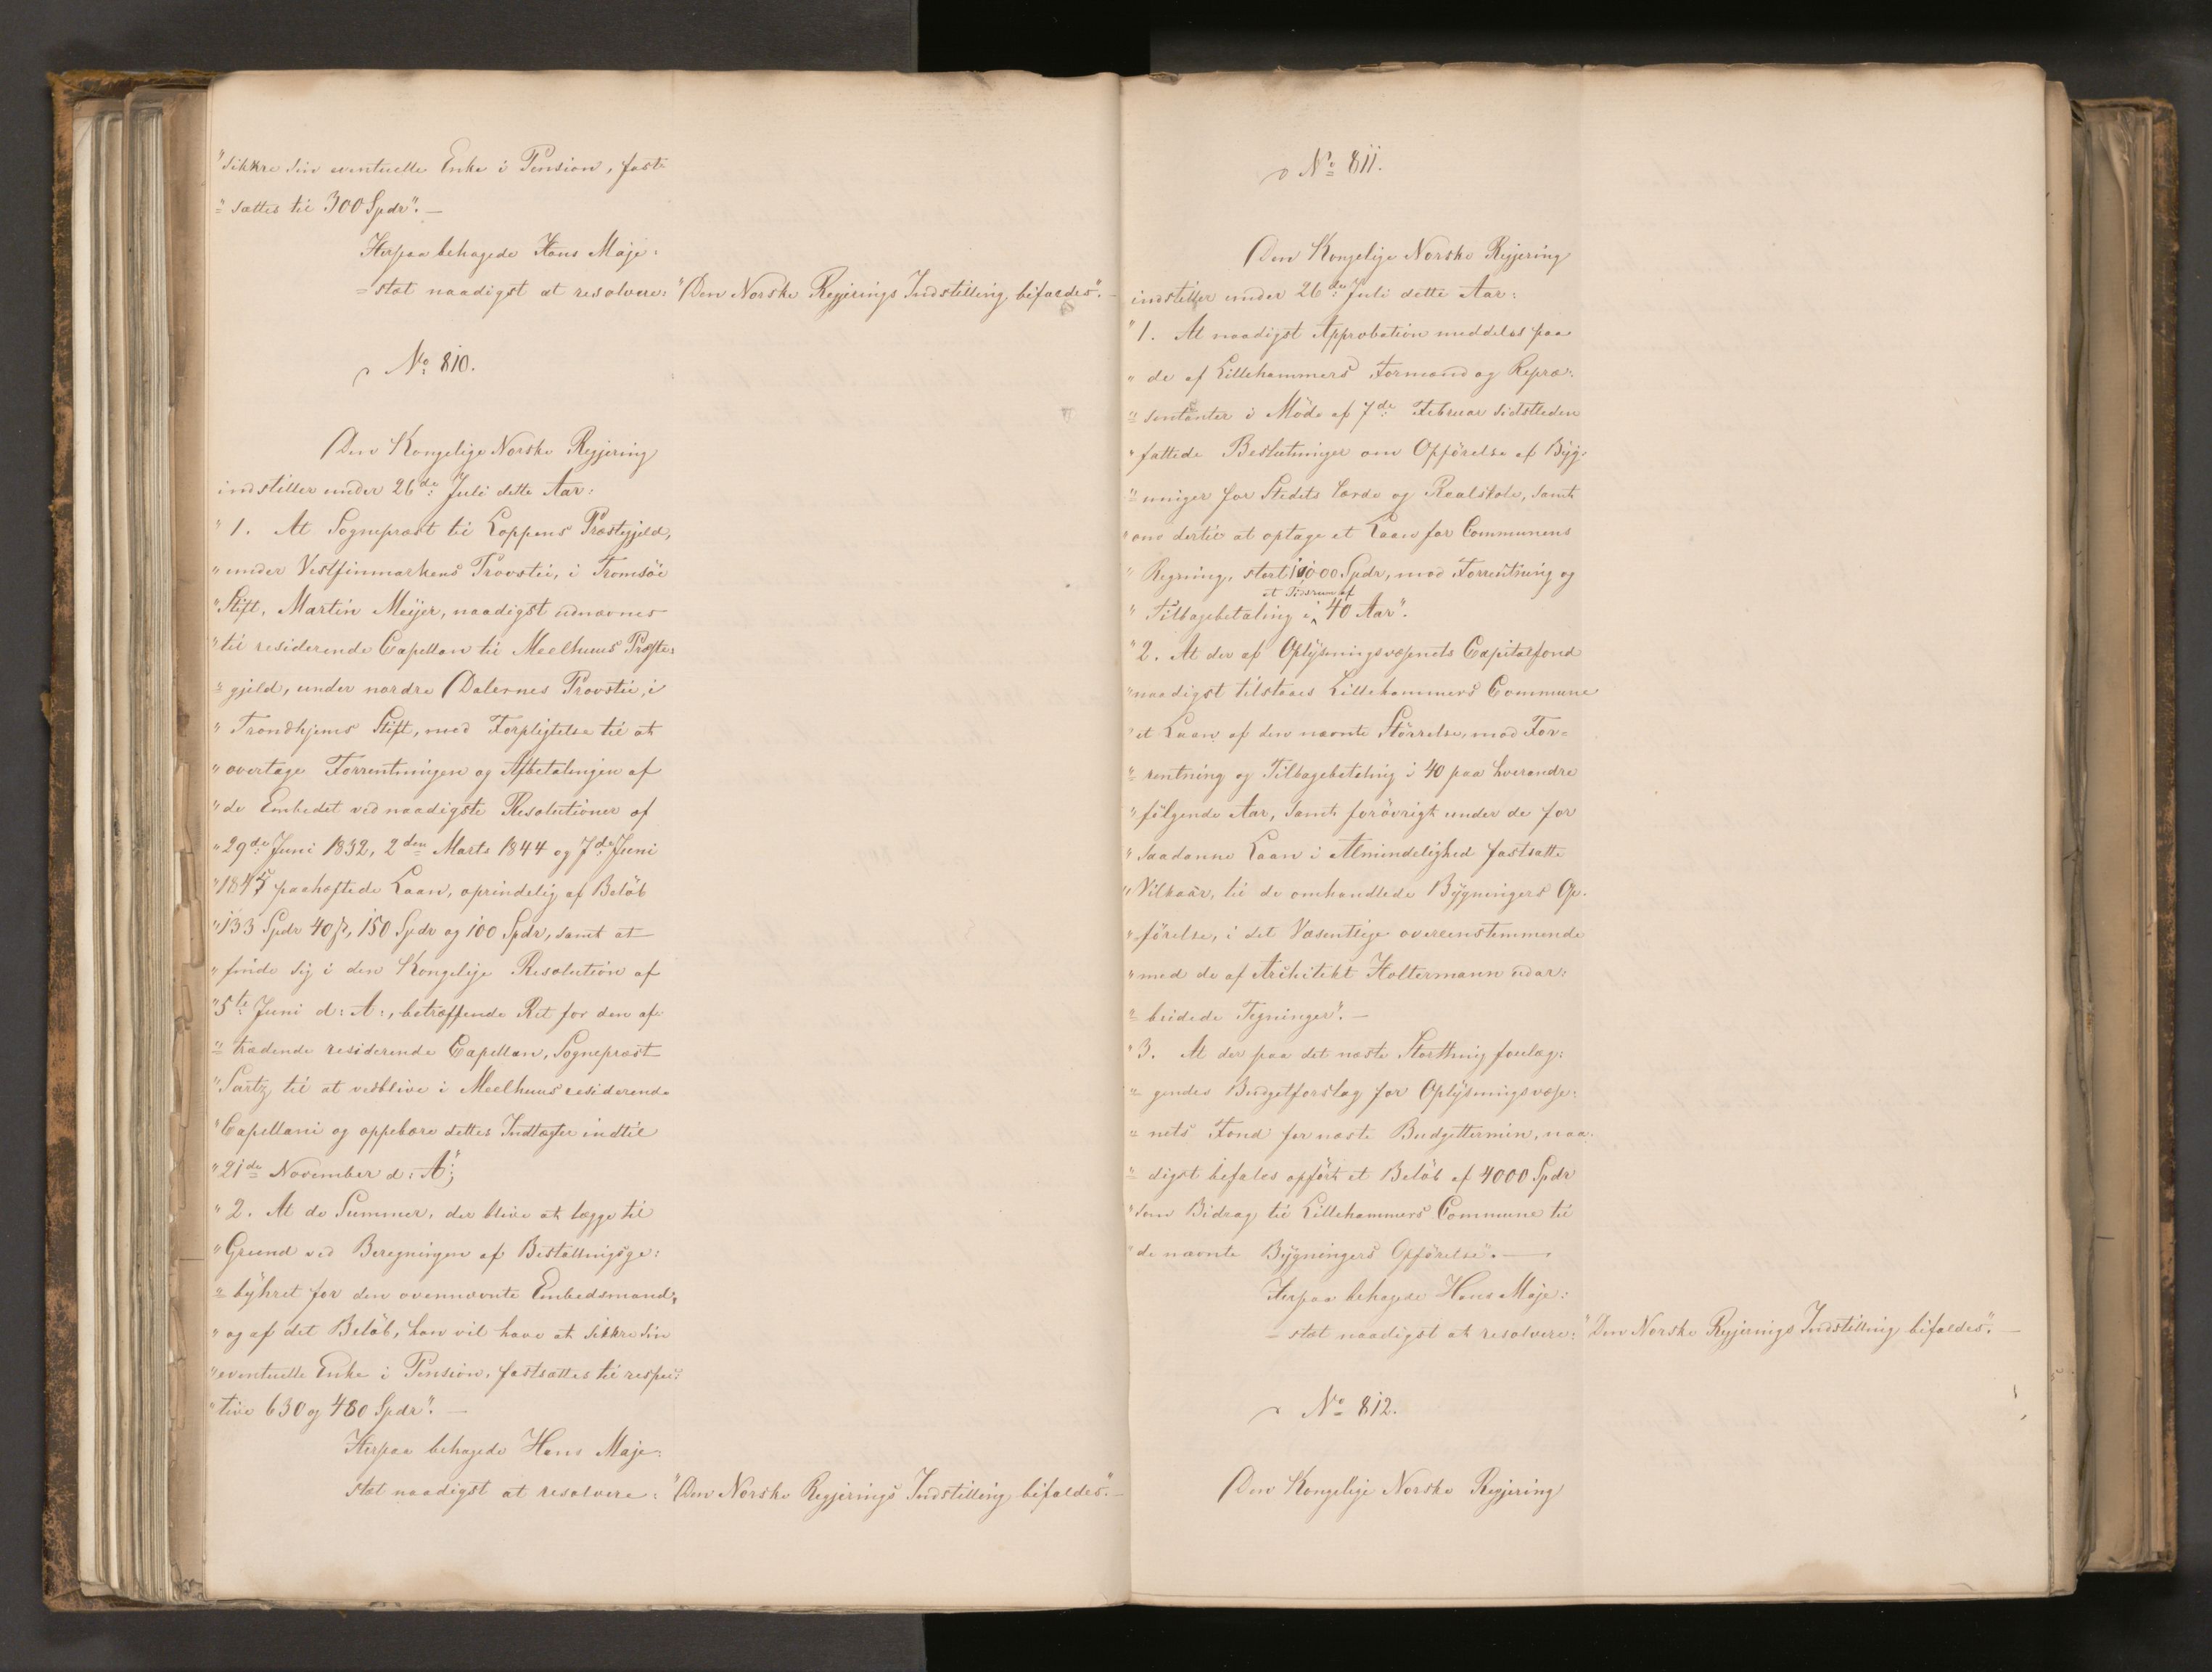 "sikkre sin eventuelle Enke i Pension, fast-
"= sættes til 300 Spdr". —
Herpaa behagede Hans Maje:
= stæt naadigst at resolvere: "Den Norske Regjerings Indstilling bifaldes". —
No 810.
Den Kongelige Norske Regjering
indstiller under 26de Juli dette Aar:
"1. At Sognepræst til Loppens Præstegjeld,
"under Vestfinmarkens Provstie, i Tromsöe
"Stift, Martin Meijer, naadigst udnævnes
"til residerende Capellan til Meelhuus Præste:
"= gjeld, under nordre Dalernes Provstie, i
"Trondhjems Stift, med Forpligtelse til at
"overtage Forrentningen og Afbetalingen af
"de Embedet ved naadigste Resolutioner af
"29de Juni 1832, 2den Marts 1844 og 7de Juni
"1845 paahæftede Laan, oprindelig af Belöb
"133 Spdr 40 β, 150 Spdr og 100 Spdr, samt at
"finde sig i den Kongelige Resolution af
"5te Juni d: A:, betræffende Ret for den af-
"= trædende residerende Capellan, Sognepræst
"Sartz til at vedblive i Meelhuus residerende
"Capellani og oppebære dettes Indtægter indtil
"21de November d: A";
"2. At de Summer, der blive at lægge til
"Grund ved Beregningen af Bestallingsge:
"= byhret for den ovennævnte Embedsmand,
"og af det Belöb, han vil have at sikkre sin
"eventuelle Enke i Pension, fastsættes til respec:
"tive 630 og 480 Spdr". —
Herpaa behagede Hans Maje:
stæt naadigst at resolvere: "Den Norske Regjerings Indstilling bifaldes". —
No 811.
Den Kongelige Norske Regjering
indstiller under 26de Juli dette Aar:
"1. At naadigst Approbation meddeles paa
"de af Lillehammers Formænd og Repræ:
"= sentanter i Möde af 7de Februar sidstleden
"fattede Beslutninger om Opförelse af Byg-
"= ninger for Stedets lærde og Realskole, samt
"om dertil at optage et Laan for Communens
"Regning, stort 10000 Spdr, mod Forrentning og
et Tidsrum af
"Tilbagebetaling i 40 Aar".
"2. At der af Oplysningsvæsenets Capitalfond
"naadigst tilstaaes Lillehammers Commune
"et Laan af den nævnte Störrelse, mod For=
"= rentning og Tilbagebetaling i 40 paa hverandre
"fölgende Aar, samt forövrigt under de for
"saadanne Laan i Almindelighed fastsatte
"Vilkaar, til de omhandlede Bygningers Op-
"förelse, i det Væsentlige overeenstemmende
"med de af Architekt Holtermann udar:
"= beidede Tegninger". —
"3. At der paa det næste Storthing forelæg:
"= gendes Budgetforslag for Oplysningsvæse:
"= nets Fond for næste Budgettermin, naa-
"= digst befales opfört et Belöb af 4000 Spdr
"som Bidrag til Lillehammers Commune til
"de nævnte Bygningers Opförelse". —
Herpaa behagede Hans Maje:
= stæt naadigst at resolvere: "Den Norske Regjerings Indstilling bifaldes". —
No 812.
Den Kongelige Norske Regjering